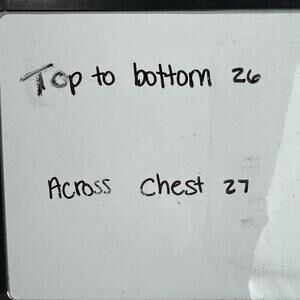 Top to bottom 26
Across Chest 27